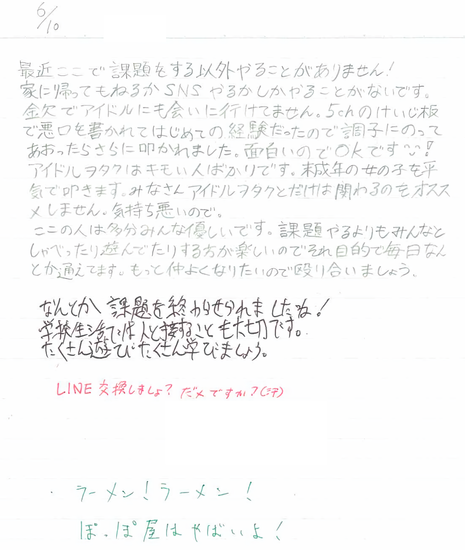 6/10
最近ここで課題をする以外やることがありません!
家に帰ってもねるかSNSやるかしかやることがないです。
金欠でアイドルにも会いに行けてません。5chのけいじ板
で悪口を書かれてはじめての経験だったので調子にのって
あおったらさらに叩かれました。面白いのでOKです!
アイドルヲタクはキモい人ばかりです。未成年の女の子を平
気で叩きます。みなさんアイドルヲタクとだけは関わるのをオスス
メしません。気持ち悪いので。
ここの人は多分みんな優しいです。課題やるよりもみんなと
しゃべったり遊んでたりする方が楽しいのでそれ目的で毎日なん
とか通えてます。もっと仲よくなりたいので殴り合いましょう。
なんとか課題を終わらせられましたね!
学校生活では人と接することも大切です。
たくさん遊びたくさん学びましょう。
LINE交換しましょ?ダメですか?(汗)
ラーメン!ラーメン!
ぽっぽ屋はやばいよ!